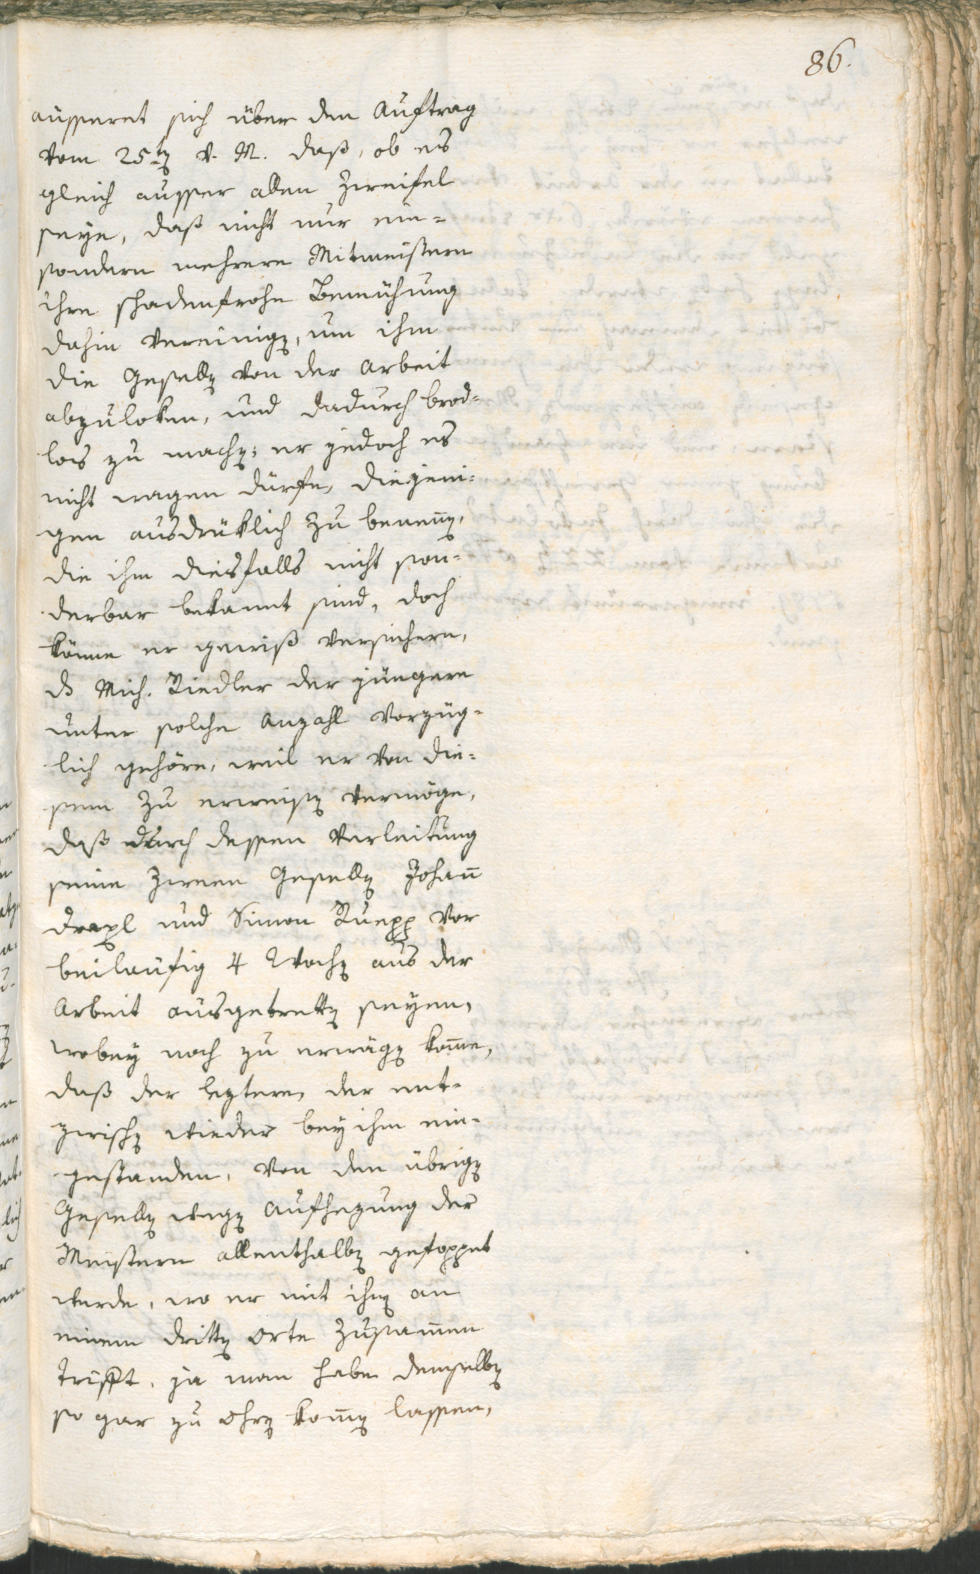 86.
äusseret sich über den Auftrag
vom 25ten v. M. daß, ob es
gleich ausser allen Zweifel
seye, daß nicht nur ein=
sondern mehrere Mitmeistern
ihre schadenfrohe Bemühung
dahin vereinigen, um ihm
die Gesellen von der Arbeit
abzuloken, und dadurch brod=
los zu machen; er jedoch es
nicht wagen dürfe, diejeni=
gen ausdrüklich zu benennen,
die ihm diesfalls nicht son=
derbar bekannt sind, doch
könne er gewiß versichern,
dß Mich. Riedler der jüngere
unter solche Anzahl vorzüg=
lich gehöre, weil er von die=
sem zu erweisen vermöge,
daß durch dessen Verleitung
seine zween Gesellen Johann
Draxl und Simon Ruepp vor
beiläufig 4 Wochen aus der
Arbeit ausgetretten seyen,
wobey noch zu erwägen komme,
daß der leztere, der ent=
zwischen wieder bey ihm ein=
gestanden, von den übrigen
Gesellen wegen Aufhezung der
Meistern allenthalben gefoppet
werde, wo er mit ihnen an
einem dritten Orte zusammen
trifft, ja man habe demselben
so gar zu Ohren kommen lassen,